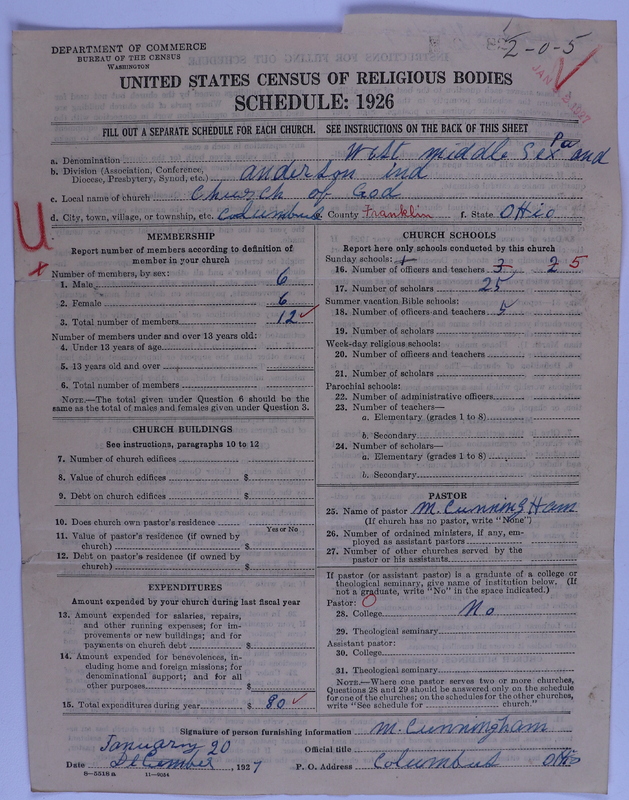 2-0-5
DEPARTMENT OF COMMERCE
BUREAU OF THE CENSUS
WASHINGTON
UNITED STATES CENSUS OF RELIGIOUS BODIES
SCHEDULE: 1926
FILL OUT A SEPARATE SCHEDULE FOR EACH CHURCH. SEE INSTRUCTIONS ON THE BACK OF THIS SHEET
a. Denomination West middle Sex Pa and
b. Division (Association, Conference, Diocese, Presbytery, Synod, etc.) anderson ind
c. Local name of church Church of God
d. City, town, village, or township, etc. Columbus County Franklin f. State Ohio
U
x
MEMBERSHIP
Report number of members according to definition of
member in your church
Number of members, by sex:
1. Male 6
2. Female 6
3. Total number of members 12
Number of members under and over 13 years old:
4. Under 13 years of age
5. 13 years old and over
6. Total number of members
NOTE.—The total given under Question 6 should be
same as the total of males and females given under Question 3.
CHURCH BUILDINGS
See instructions, paragraphs 10 to 12
7. Number of church edifices
8. Value of church edifices $
9. Debt on church edifices $
10. Does church own pastor's residence
Yes or No
11. Value of pastor's residence (if owned by
church) $
12. Debt on pastor's residence (if owned by
church) $
EXPENDITURES
Amount expended by your church during last fiscal year
13. Amount expended for salaries, repairs,
and other running expenses; for im-
provements or new buildings; and for
payments on church debt $
14. Amount expended for benevolences, in-
cluding home and foreign missions; for
denominational support; and for all
other purposes $
15. Total expenditures during year $ 80
CHURCH SCHOOLS
Report here only schools conducted by this church
Sunday schools:
16. Number of officers and teachers 3 2 5
17. Number of scholars 25
Summer vacation Bible schools:
18. Number of officers and teachers 5
19. Number of scholars
Week-day religious schools:
20. Number of officers and teachers
21. Number of scholars
Parochial schools:
22. Number of administrative officers
23. Number of teachers—
a. Elementary (grades 1 to 8)
b. Secondary
24. Number of scholars—
a. Elementary (grades 1 to 8)
b. Secondary
PASTOR
25. Name of pastor M. Cunningham
(If church has no pastor, write "None")
26. Number of ordained ministers, if any, em-
ployed as assistant pastors
27. Number of other churches served by the
pastor or his assistants
If pastor (or assistant pastor) is a graduate of a college or
theological seminary, give name of institution below. (If
not a graduate, write "No" in the space indicated.)
Pastor:
28. College No
29. Theological seminary
Assistant pastor:
30. College
31. Theological seminary
NOTE.—Where one pastor serves two or more churches,
Questions 28 and 29 should be answered only on the schedule
for one of the churches; on the schedules for the other churches,
write "See schedule for church."
Signature of person furnishing information M. Cunningham
January 20
Official title
Date December, 1927 P. O. Address Columbus Ohio
8—5518a 11—9034